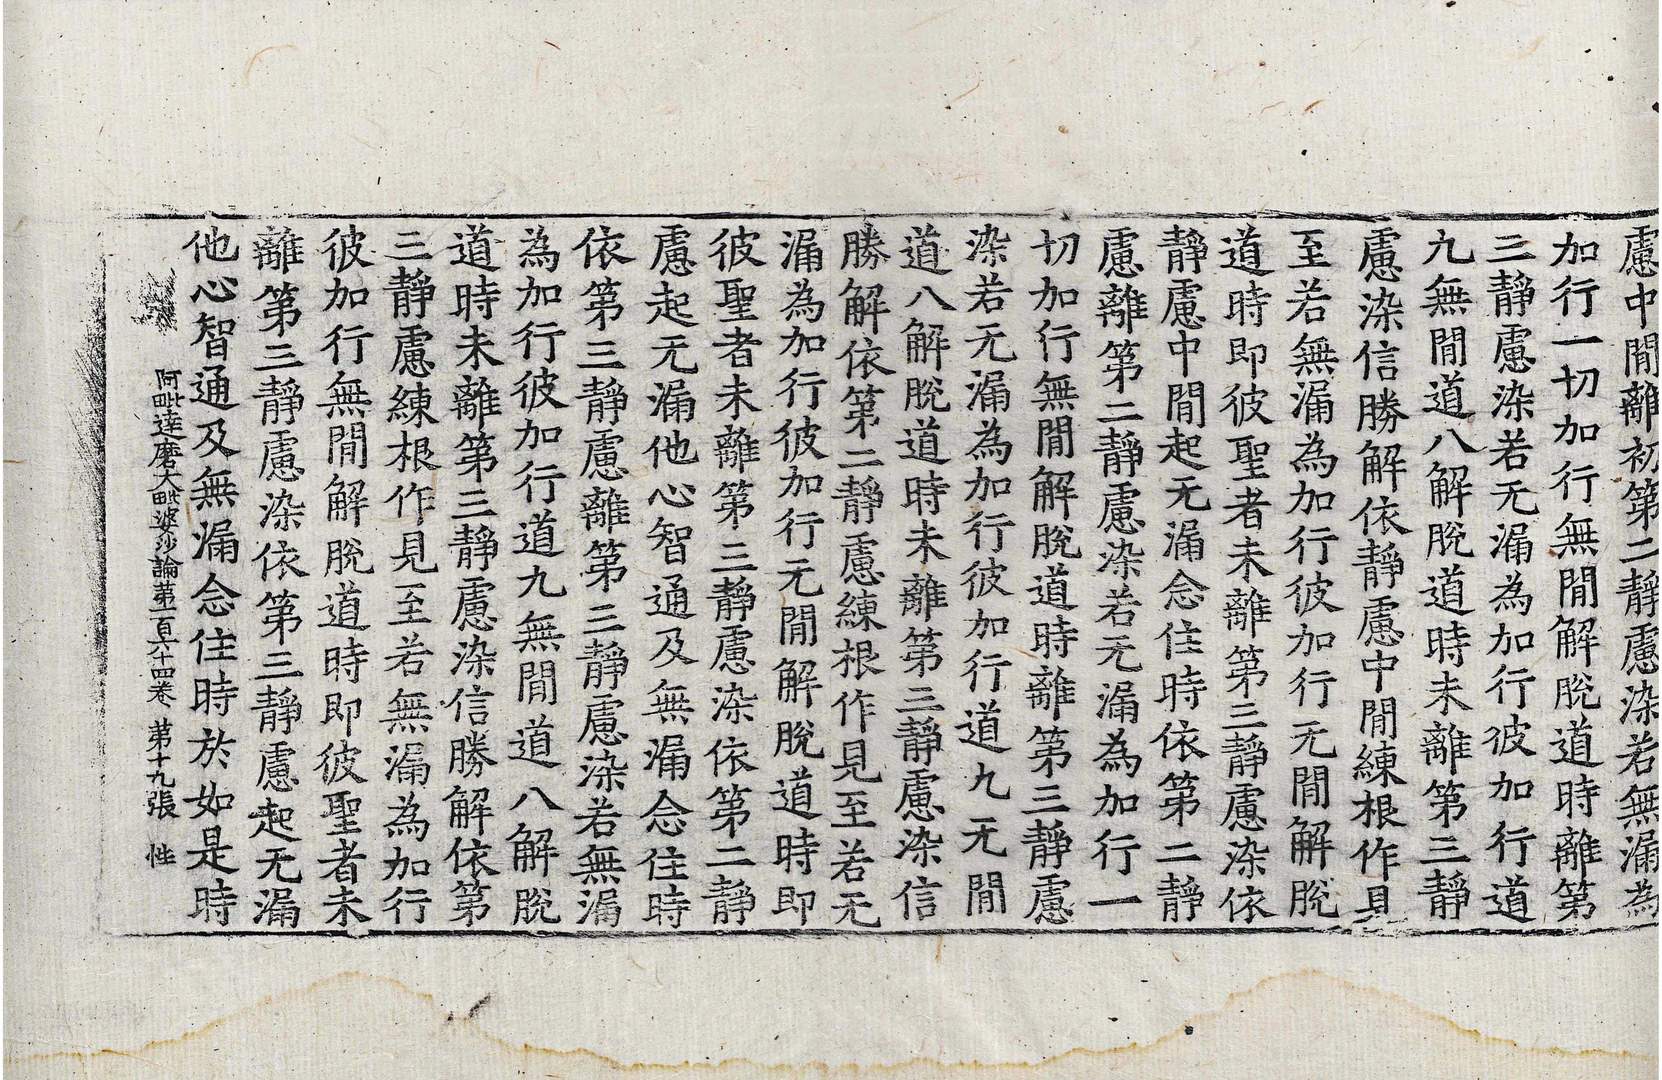 慮中間離初第二靜慮染若無漏為
加行一切加行無間解脫道時離第
三靜慮染若无漏為加行彼加行道
九無間道八解脫道時未離第三靜
慮染信勝解依靜慮中間練根作見
至若無漏為加行彼加行无間解脫
道時即彼聖者未離第三靜慮染依
靜慮中間起无漏念住時依第二靜
慮離第二靜慮染若无漏為加行一
切加行無間解脫道時離第三靜慮
染若无漏為加行彼加行道九无間
道八解脫道時未離第三靜慮染信
勝解依第二靜慮練根作見至若无
漏為加行彼加行无間解脫道時即
彼聖者未離第三靜慮染依第二靜
慮起无漏他心智通及無漏念住時
依第三靜慮離第三靜慮染若無漏
為加行彼加行道九無間道八解脫
道時未離第三靜慮染信勝解依第
三靜慮練根作見至若無漏為加行
彼加行無間解脫道時即彼聖者未
離第三靜慮染依第三靜慮起无漏
他心智通及無漏念住時於如是時
阿毗達磨大毗婆沙論第一百六十四卷 第十九張 性